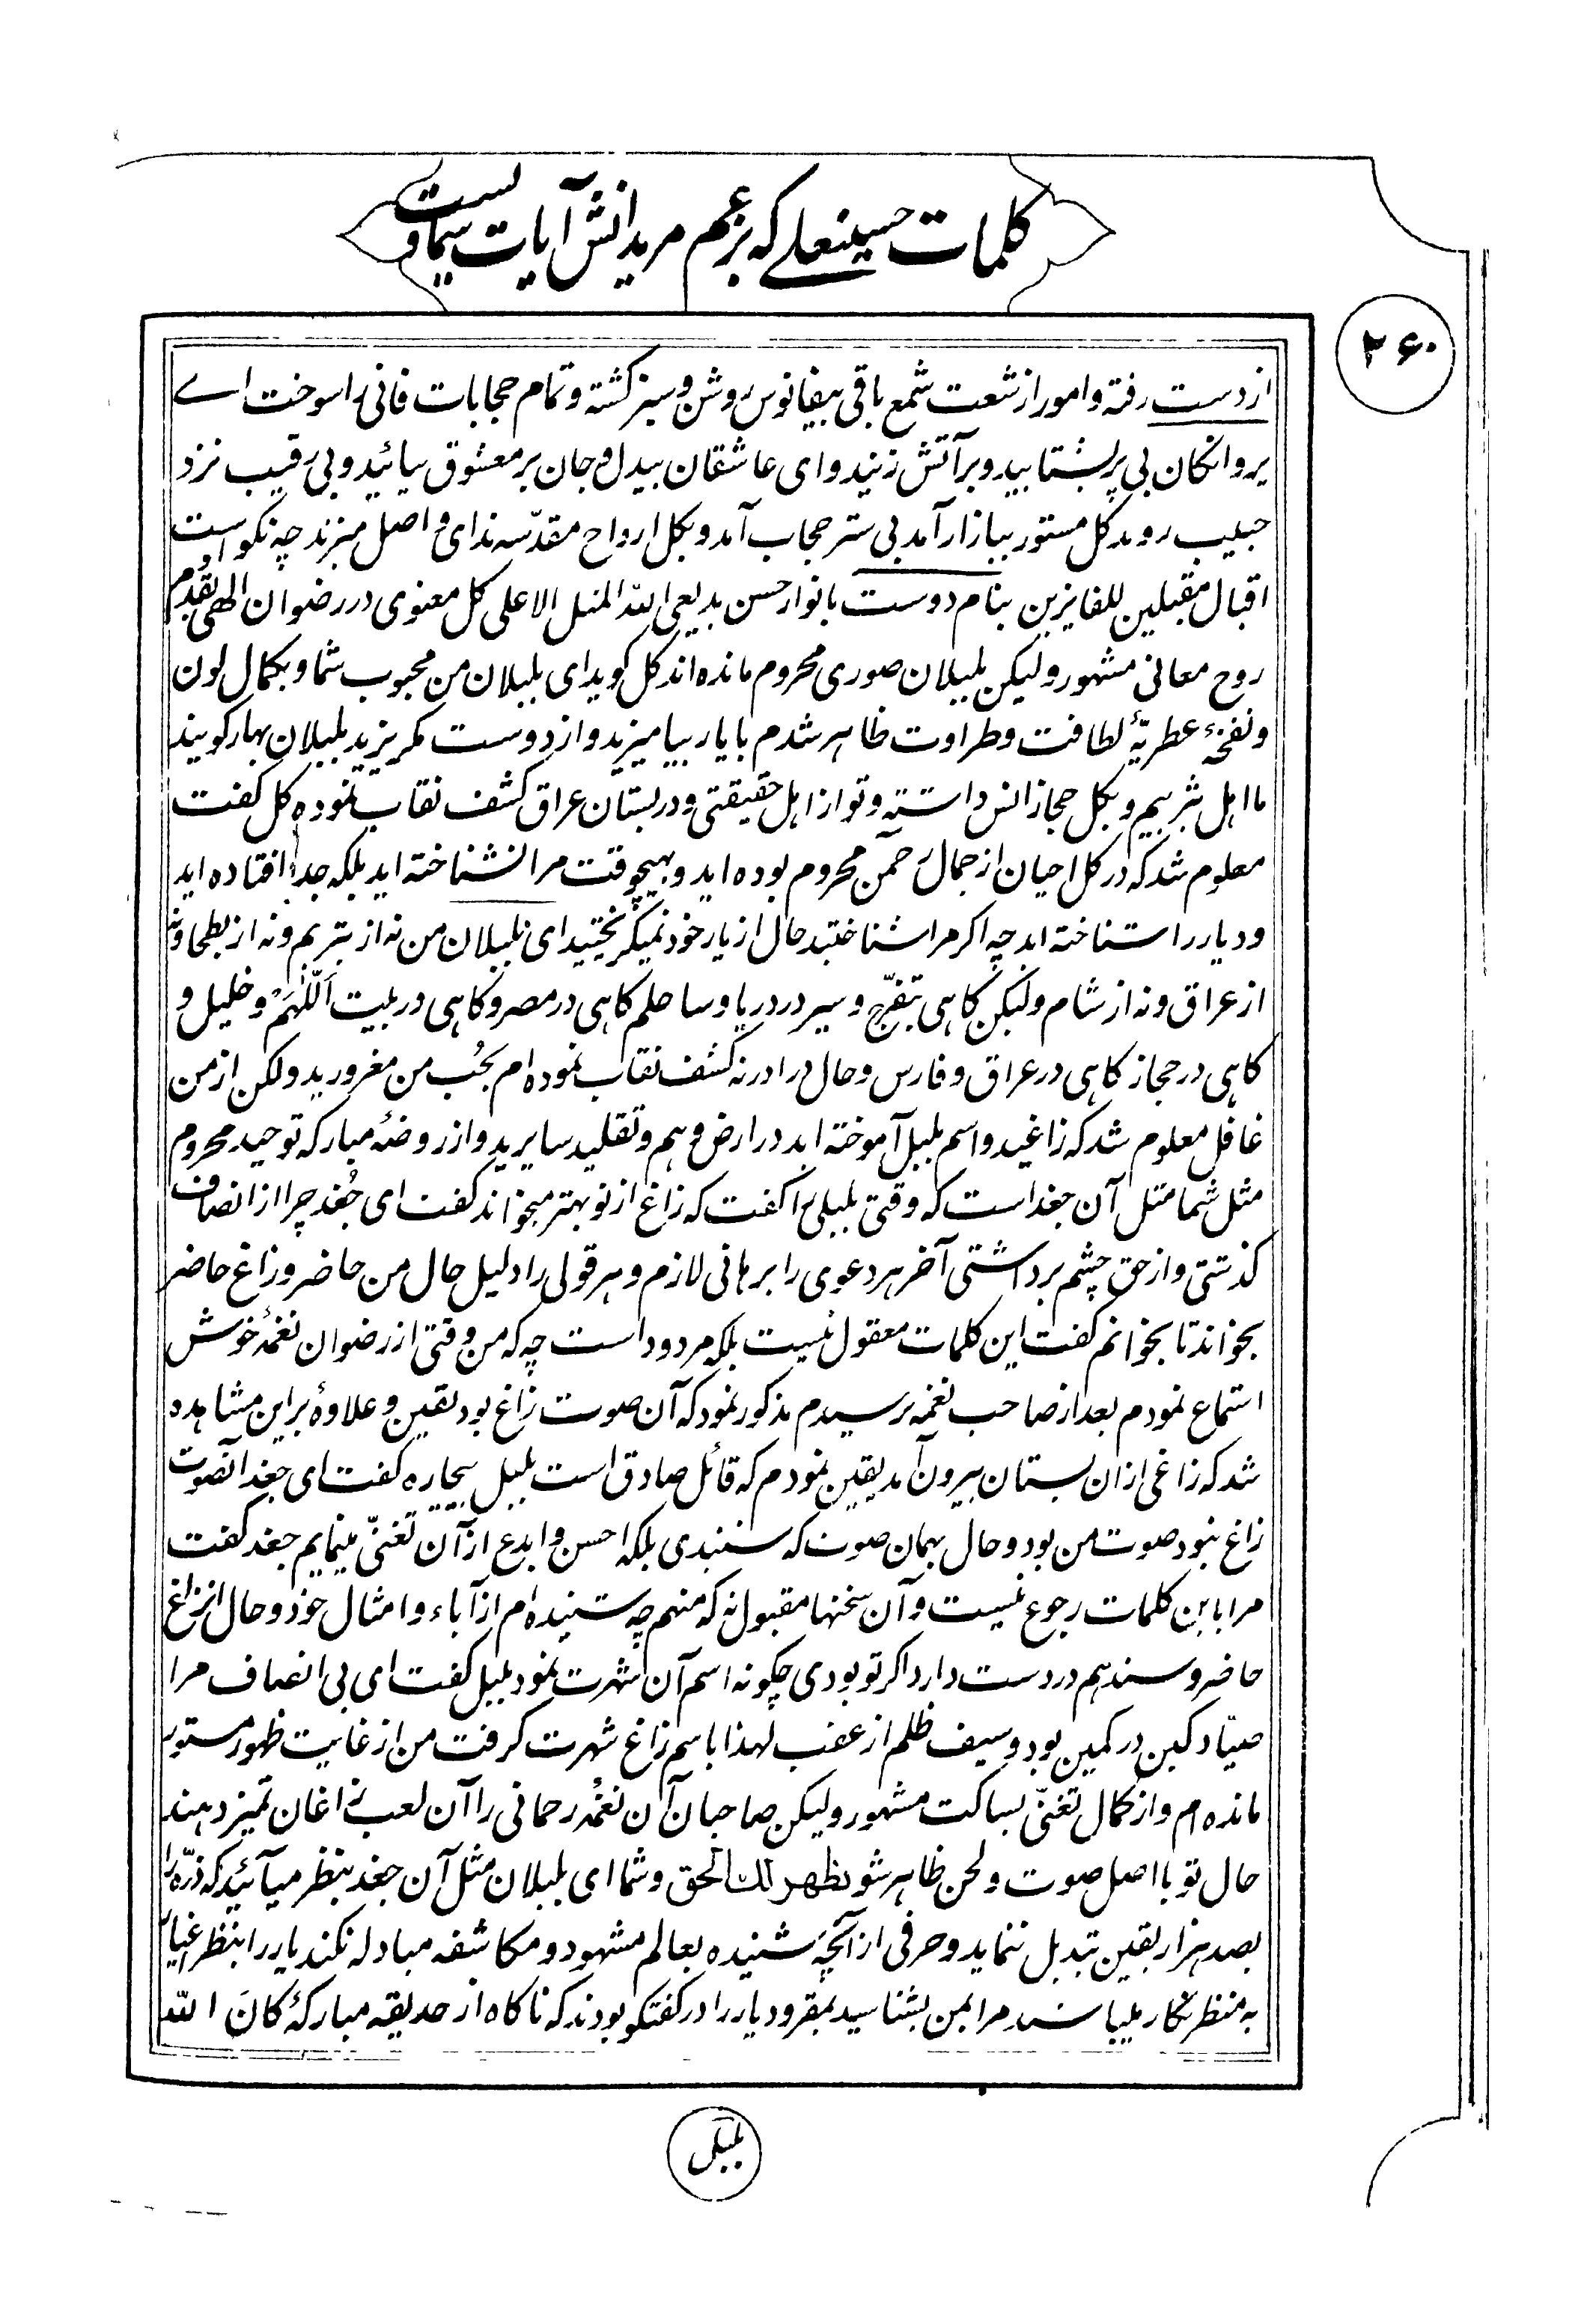 کلمات حسینعلی که بزعم مریدانش آیات سماویست
۲۶۰
از دست رفته و امور از شعت شمع باقی بیفانوس روشن و سبز گشته و تمام حجابات فانی را سوخت اے
پروانکان بی پر بشتابید و بر آتش زنید و ای عاشقان بیدل و جان بر معشوق بیائید و بی رقیب نزد
حبیب روید کل مستور ببازار آمد بی ستر حجاب آمد و بکل ارواح مقدّسه ندای و اصل میزند چه نکو است
اقبال مقبلین للفایزین بنام دوست بانوار حسن بدیعی الله المثل الاعلی کل معنوی در رضوان الهی بقدوم
روح معانی مشهور و لیکن بلبلان صوری محروم مانده اند کل کوید ای بلبلان من محبوب شما و بکمال لون
و نفخهٔ عطریّهٔ لطافت و طراوت ظاهر شدم با یار بیامیزید و از دوست مکریزید بلبلان بهار کویند
ما اهل یثربیم و بکل حجاز انس داشته و تو از اهل حقیقتی و در بستان عراق کشف نقاب نموده کل کفت
معلوم شد که در کل احیان از جمال رحمن محروم بوده اید و بهیچوقت مرا نشناخته اید بلکه جدا افتاده اید
و دیار را شناخته اید چه اکر مرا شناختید حال از یار خود نمیکریختید ای بلبلان من نه از یثربم و نه از بطحا و نه
از عراق و نه از شام و لیکن کاهی بتفرّج و سیر در دریا و ساحلم کاهی در مصر و کاهی در بیت اللّهم و خلیل و
کاهی در حجاز کاهی در عراق و فارس و حال در ادرنه کشف نقاب نموده ام بحُب من مغرورید و لکن از من
غافل معلوم شد که زاغید و اسم بلبل آموخته اید در ارض وهم و تقلید سایرید و از روضهٔ مبارکه توحید محروم
مثل شما مثل آن جغد است که وقتی بلبلی را کفت که زاغ از تو بهتر میخواند کفت ای جُغد چرا از انصاف
کذشتی و از حق چشم برداشتی آخر هر دعوی را برهانی لازم و هر قولی را دلیل حال من حاضر و زاغ حاضر
بخواند تا بخوانم کفت این کلمات معقول نیست بلکه مردود است چه که من وقتی از رضوان نغمهٔ خوش
استماع نمودم بعد از صاحب نغمه پرسیدم مذکور نمود که آن صوت زاغ بود یقین و علاوهٔ بر این مشاهده
شد که زاغی از ان بستان بیرون آمد یقین نمودم که قائل صادق است بلبل بیچاره کفت ای جغد آنصوت
زاغ نبود صوت من بود و حال بهمان صوت که شنیدی بلکه احسن و ابدع از آن تغنّی مینمایم جغد کفت
مرا باین کلمات رجوع نیست و آن سخنها مقبول نه که منهم چه شنیده ام از آباء و امثال خود و حال ان زاغ
حاضر و سند هم در دست دارد اکر تو بودی چکونه اسم آن شهرت نمود بلبل کفت ای بی انصاف مرا
صیّاد کین در کمین بود و سیف ظلم از عقب لهذا باسم زاغ شهرت کرفت من از غایت ظهور مستور
مانده ام و از کمال تغنّی بساکت مشهور و لیکن صاحبان آن نغمهٔ رحمانی را آن لعب زاغان تمیز دهند
حال تو با اصل صوت و لحن ظاهر شو یظهر لک الحق و شما ای بلبلان مثل آن جغد بنظر میآئید که ذرّه را
بصد هزار یقین تبدیل ننماید و حرفی از آنچه شنیده بعالم مشهود و مکاشفه مبادله نکند یار را بنظر اغیار
به منظر نکار مرا بمن بشناسید بمقر و دیار را در کفتکو بودند که ناکاه از حدیقه مبارکهٔ کانَ الله
بلبلی